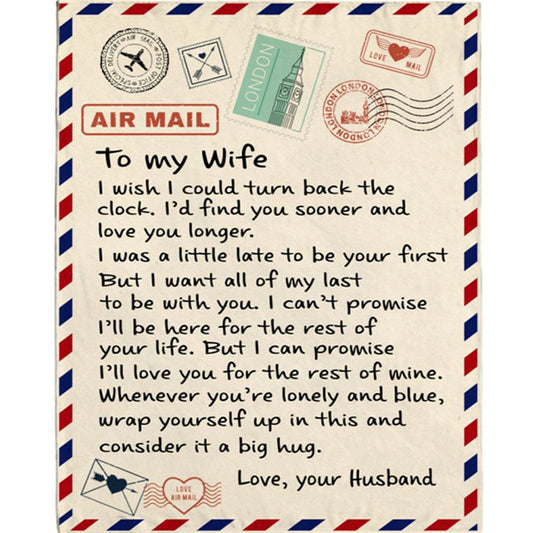 SPECIAL DELIVERY • AIR MAIL • POST OFFICE
LONDON
LOVE MAIL
LONDON LONDON LONDON
AIR MAIL
To my Wife
I wish I could turn back the
clock. I'd find you sooner and
love you longer.
I was a little late to be your first
But I want all of my last
to be with you. I can't promise
I'll be here for the rest of
your life. But I can promise
I'll love you for the rest of mine.
Whenever you're lonely and blue,
wrap yourself up in this and
consider it a big hug.
Love, your Husband
LOVE
AIR MAIL